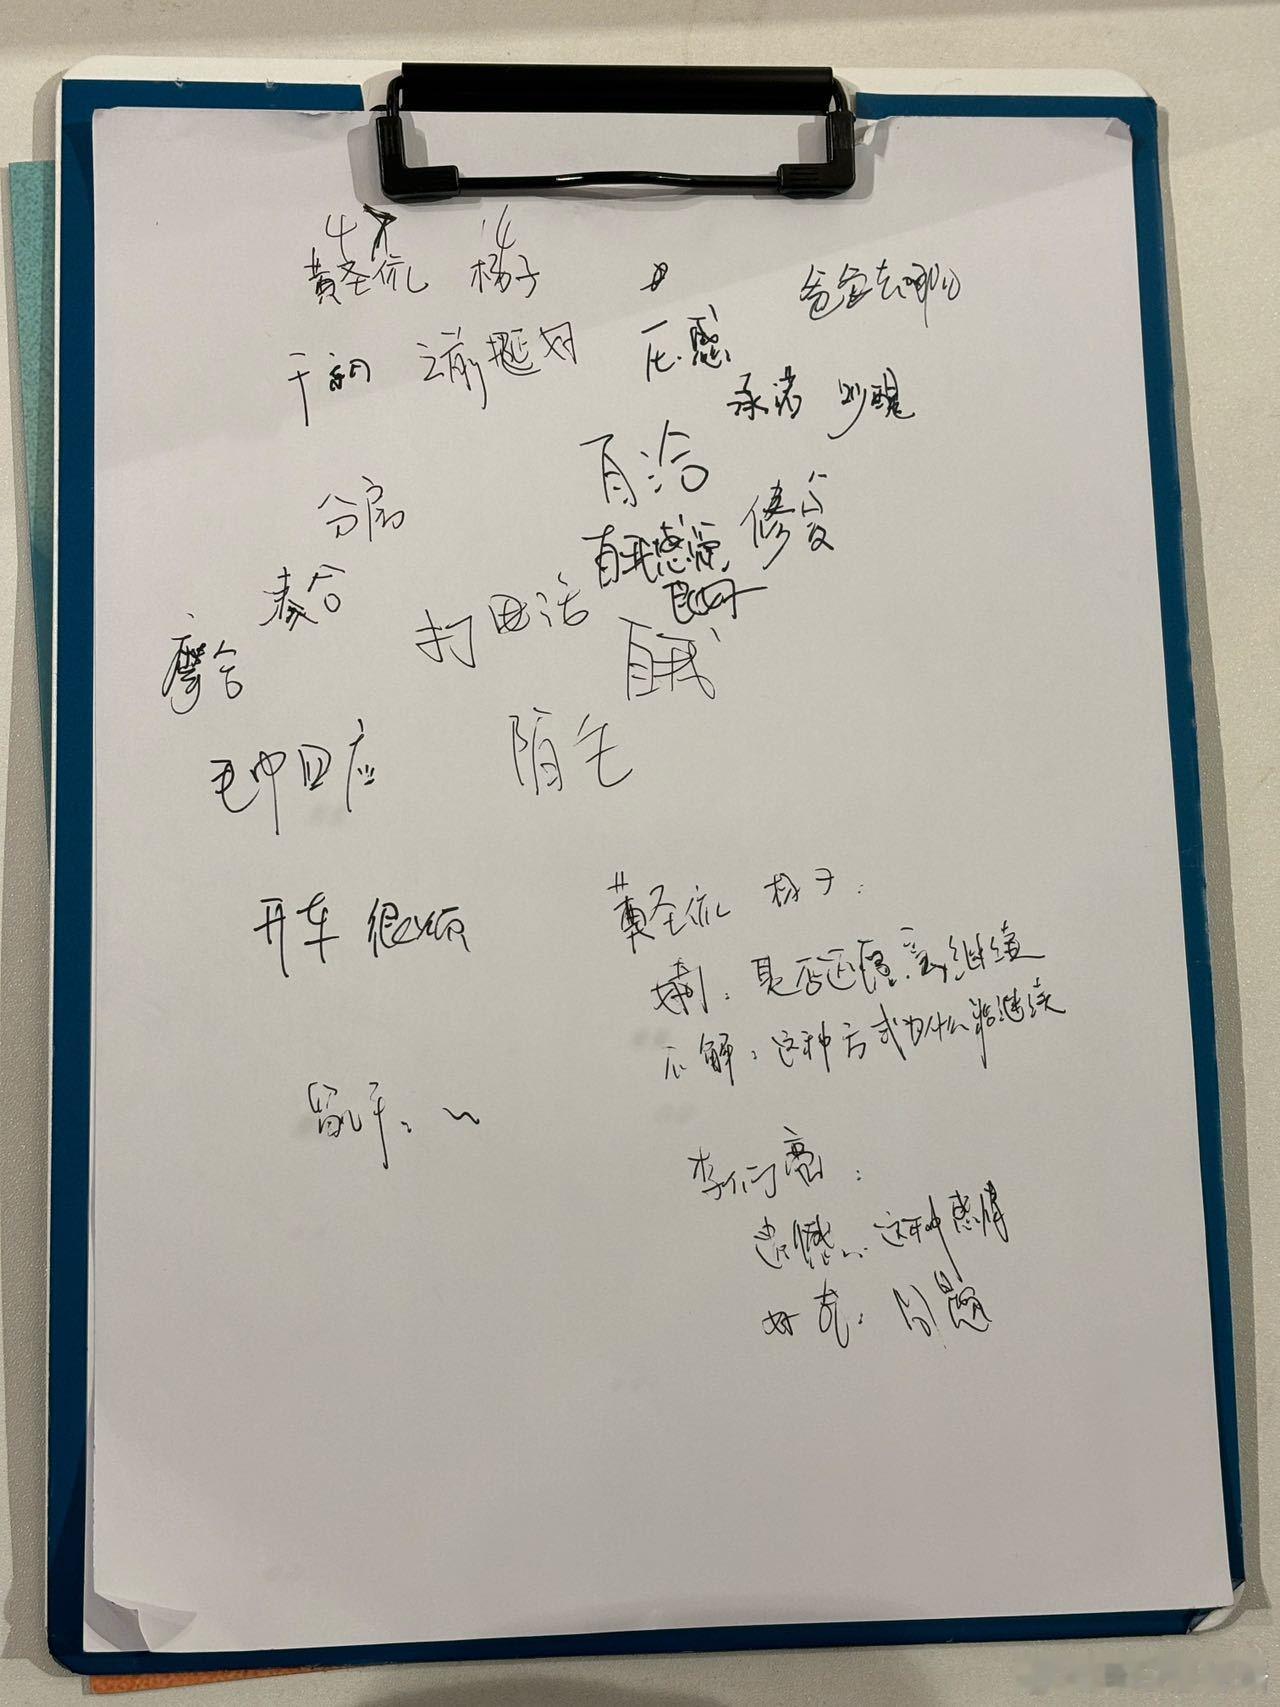 黄圣依 杨子
爸爸去哪儿
压感
承诺
自洽
分房
修复
自我感觉
良好
凑合
打电话
磨合
自我
毛巾回应
陌生
开车 很烦
黄圣依 杨子:
是否还愿意继续
不解: 这种方式为什么能继续
留几手:
李行亮:
遗憾: 这种感情
好奇: 问题